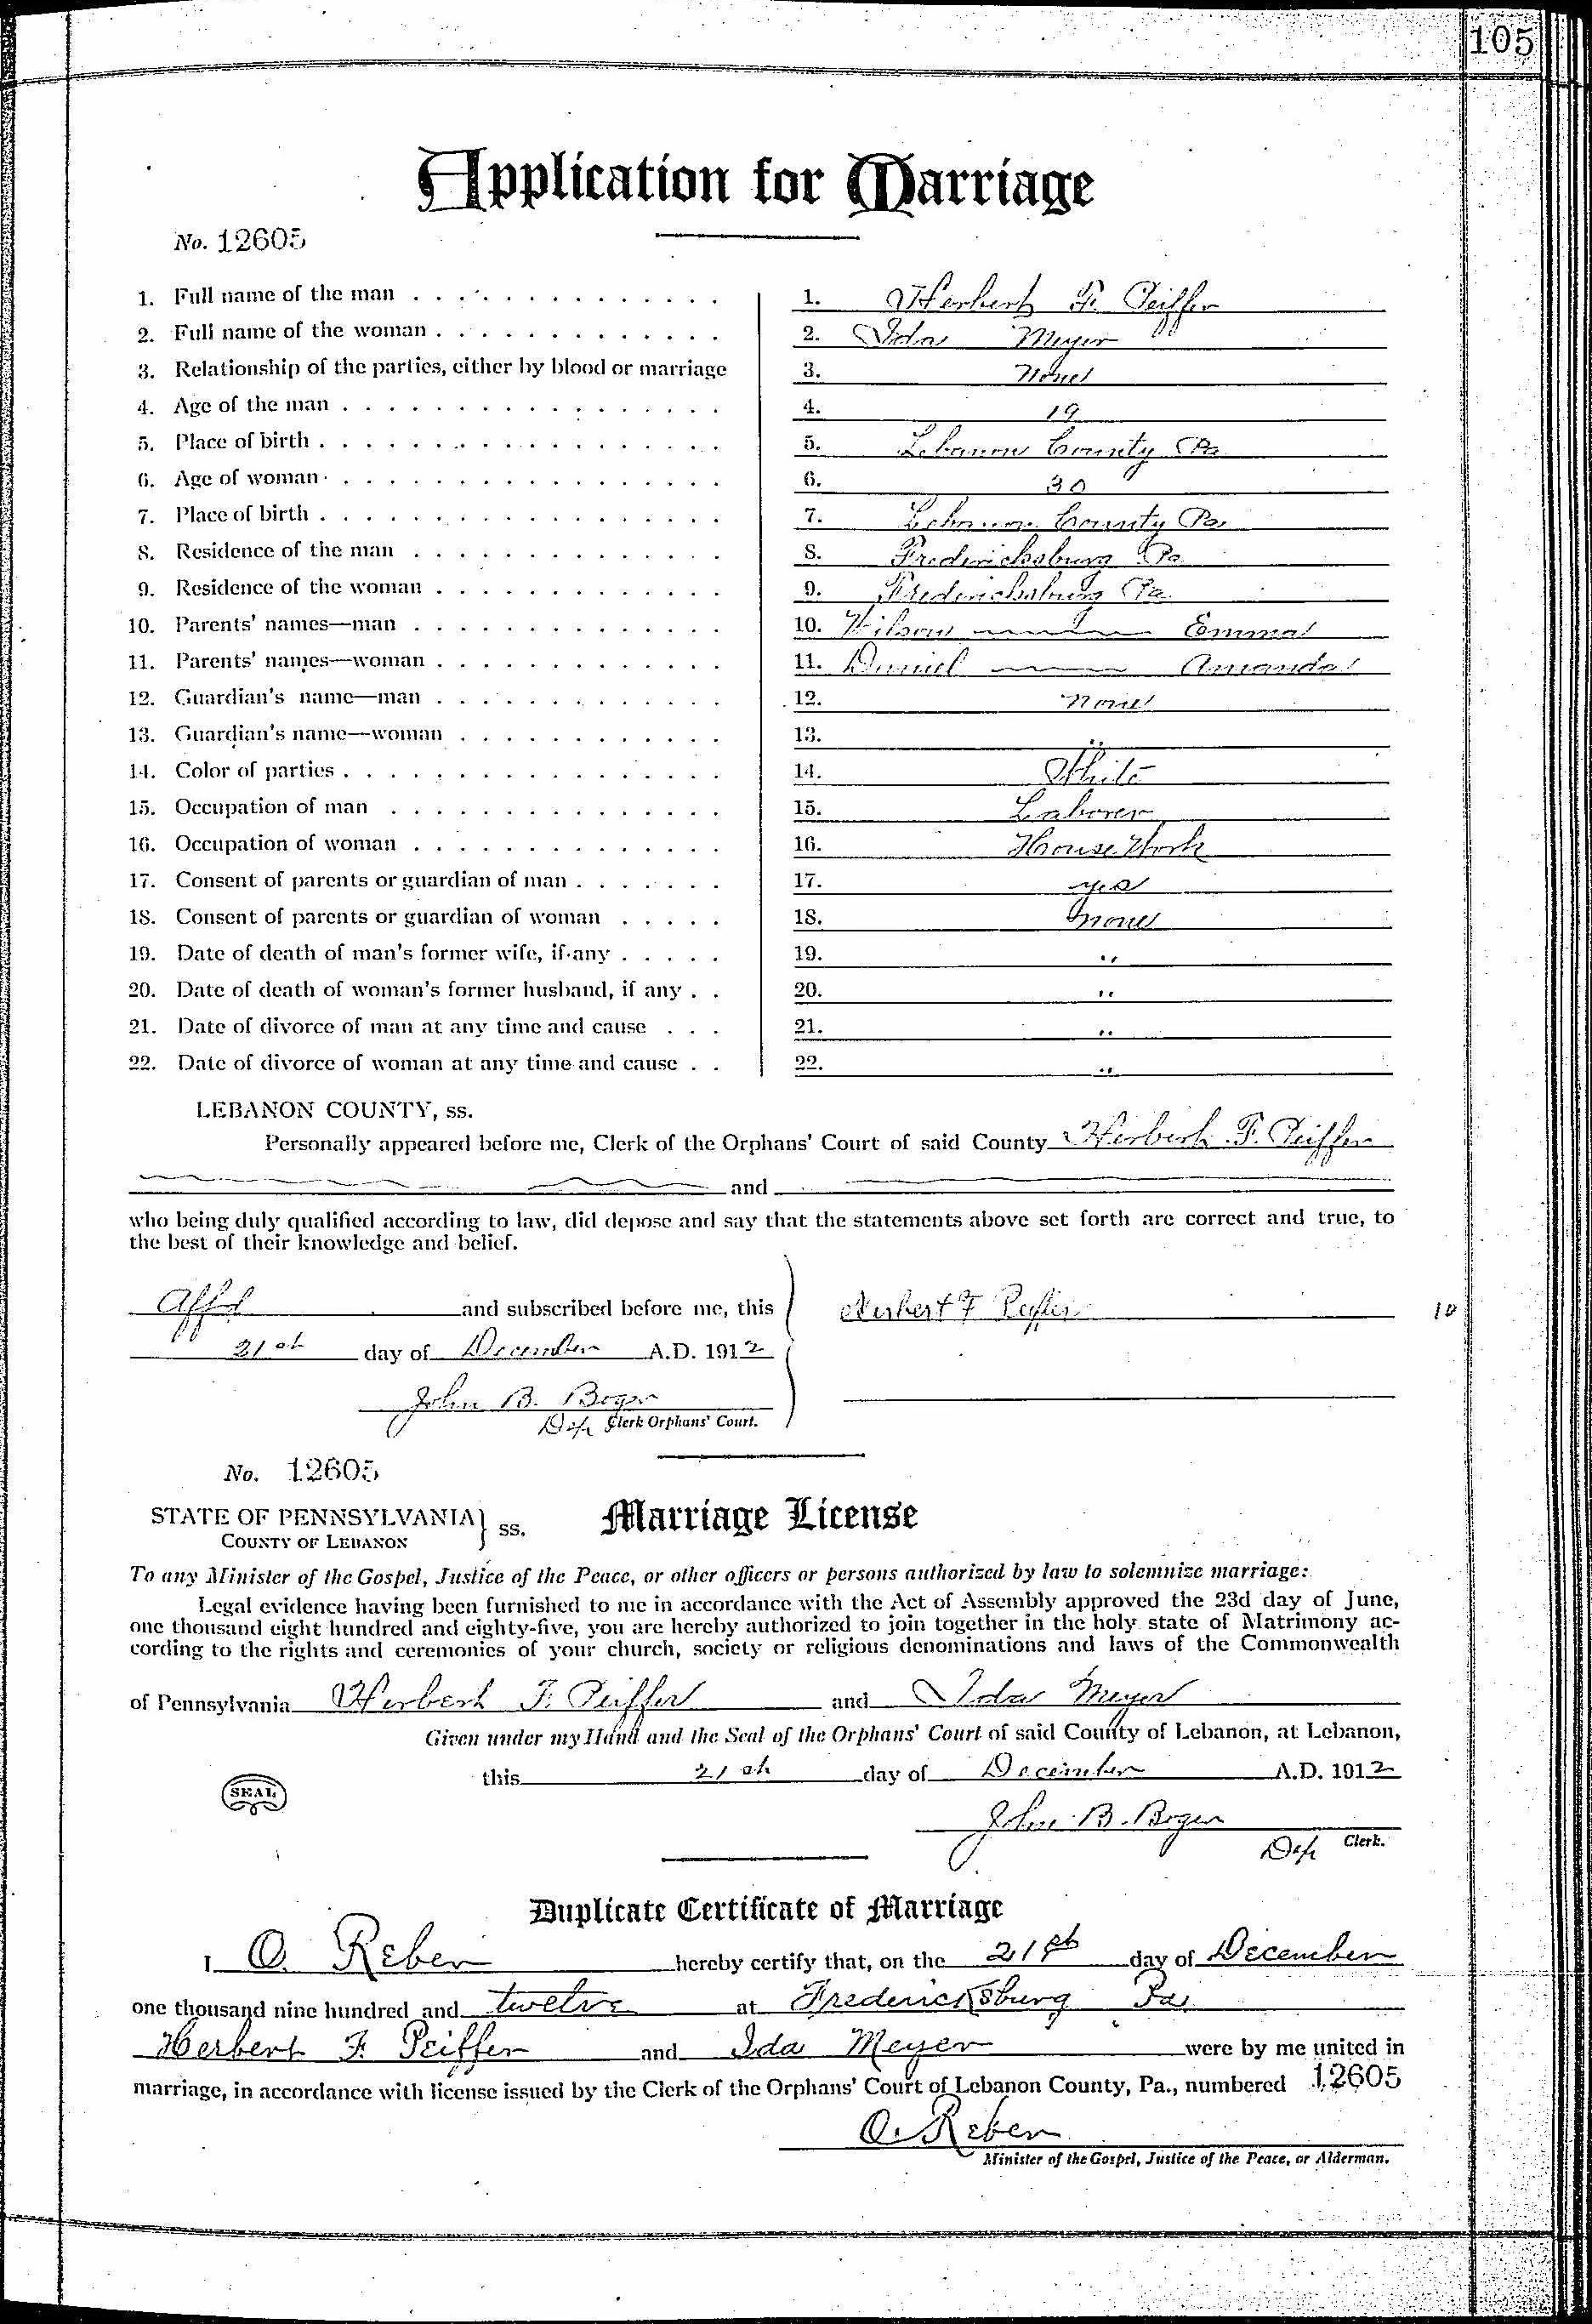 105
Application for Marriage
No. 12605
1. Full name of the man 1. Herbert F. Peiffer
2. Full name of the woman 2. Ida Meyer
3. Relationship of the parties, either by blood or marriage 3. None
4. Age of the man 4. 19
5. Place of birth 5. Lebanon County Pa
6. Age of woman 6. 30
7. Place of birth 7. Lebanon County Pa
8. Residence of the man 8. Fredericksburg Pa
9. Residence of the woman 9. Fredericksburg Pa
10. Parents' names—man 10. Wilson Emma
11. Parents' names—woman 11. Daniel Amanda
12. Guardian's name—man 12. None
13. Guardian's name—woman 13. "
14. Color of parties 14. White
15. Occupation of man 15. Laborer
16. Occupation of woman 16. House Work
17. Consent of parents or guardian of man 17. yes
18. Consent of parents or guardian of woman 18. None
19. Date of death of man's former wife, if any 19. "
20. Date of death of woman's former husband, if any 20. "
21. Date of divorce of man at any time and cause 21. "
22. Date of divorce of woman at any time and cause 22. "
LEBANON COUNTY, ss.
Personally appeared before me, Clerk of the Orphans' Court of said County Herbert F. Peiffer
and
who being duly qualified according to law, did depose and say that the statements above set forth are correct and true, to
the best of their knowledge and belief.
Affd and subscribed before me, this Herbert F Peiffer 10
21st day of December A.D. 1912
John B. Boger
Dep Clerk Orphans' Court.
No. 12605
STATE OF PENNSYLVANIA } ss. Marriage License
COUNTY OF LEBANON
To any Minister of the Gospel, Justice of the Peace, or other officers or persons authorized by law to solemnize marriage:
Legal evidence having been furnished to me in accordance with the Act of Assembly approved the 23d day of June,
one thousand eight hundred and eighty-five, you are hereby authorized to join together in the holy state of Matrimony ac-
cording to the rights and ceremonies of your church, society or religious denominations and laws of the Commonwealth
of Pennsylvania Herbert F. Peiffer and Ida Meyer
Given under my Hand and the Seal of the Orphans' Court of said County of Lebanon, at Lebanon,
this 21st day of December A.D. 1912
SEAL
John B. Boger
Dep Clerk.
Duplicate Certificate of Marriage
I O. Reber hereby certify that, on the 21st day of December
one thousand nine hundred and twelve at Fredericksburg Pa
Herbert F. Peiffer and Ida Meyer were by me united in
marriage, in accordance with license issued by the Clerk of the Orphans' Court of Lebanon County, Pa., numbered 12605
O. Reber
Minister of the Gospel, Justice of the Peace, or Alderman.